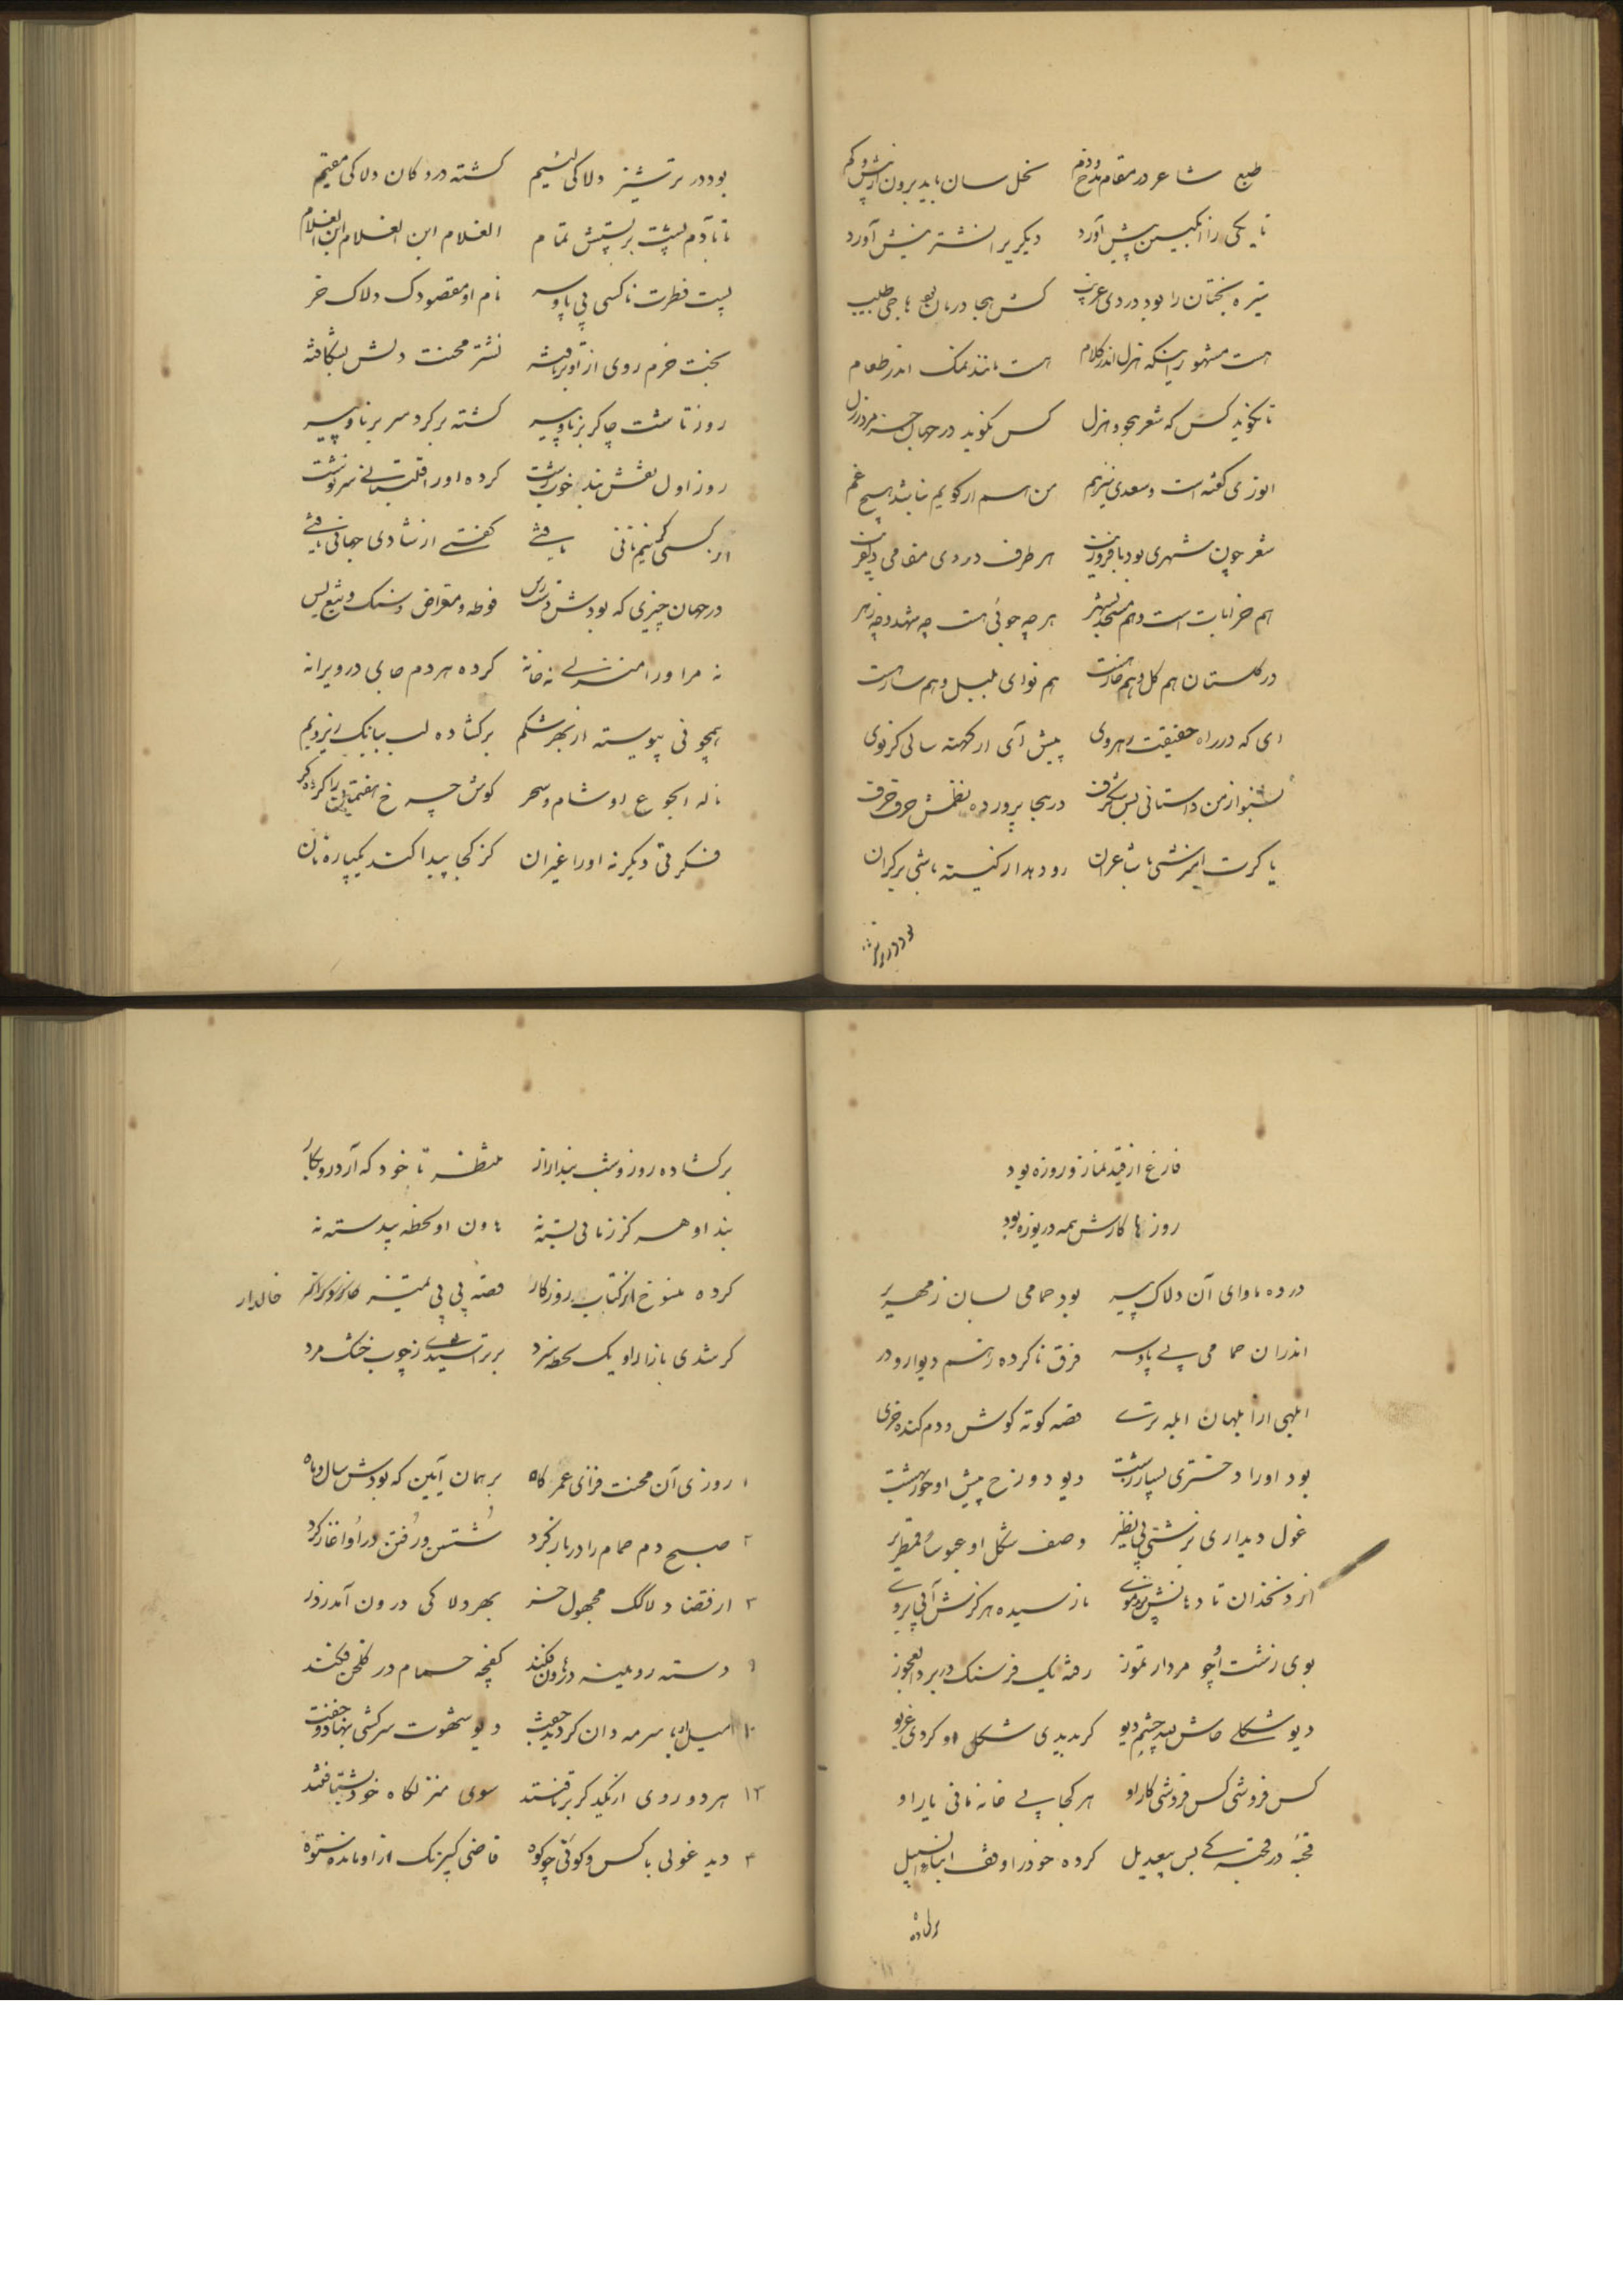 طبع شاعر در مقام مدح و ذم نحل سان باید برون از بیش و کم
تا یکی را انگبین پیش آورد دیگری را نشتر نیش آورد
تیره بختان را بود دردی غریب کش هجا درمان بود هاجی طبیب
هست مشهور اینکه هزل اندر کلام هست مانند نمک اندر طعام
تا نکوید کس که شعر هجو و هزل کس نکوید در جهان جز مرد رذل
انوری گفته است و سعدی نیز هم من هم ار کویم نباشد هیچ غم
شعر چون شهری بود با فر و زیب هر طرف در وی مقامی
هم خرابات است و هم مسجد بشهر هر چه جوئی هست چه شهد و چه زهر
در کلستان هم کل و هم خار هست هم نوای بلبل و هم سار هست
ای که در راه حقیقت رهروی پیش آی ار کهنه سالی کر نوی
بشنو از من داستانی بس شکرف در هجا پرورده نظمش حرف حرف
یا کرت باشاعران رو دهد ار کینه باشی بر کران
بود در ترشیز
بود در ترشیز دلاکی لئیم کشته در دکان دلاکی مقیم
تا بآدم پشت بر پشتش تمام الغلام ابن الغلام ابن الغلام
پست فطرت ناکسی بی پا و سر نام او مقصودک دلاک خر
بخت خرم روی از او برتافته نشتر محنت دلش بشکافته
روز تا شب چاکر برنا و پیر کشته بر کرد سر برنا و پیر
روز اول نقش بند خوب و زشت کرده او را قلتبانی سرنوشت
از کسی کر نیم نانی یافتی کفتی از شادی جهانی یافتی
در جهان چیزی که بودش دسترس فوطه و مقراض و سنک و تیغ و بس
نه مر او را منزلی نه خانه کرده هر دم جای در ویرانه
همچو نی پیوسته از بهر شکم برکشاده لب ببانک زیر و بم
ناله الجوع او شام و سحر کوش چرخ هفتمین را کرده کر
فکرتی دیکر نه او را غیر نان کز کجا پیدا کند یکپاره نان
فارغ از قید نماز و روزه بود
روزها کارش همه دریوزه بود
در ده ماوای آن دلاک پیر بود حمامی بسان زمهریر
اندر ان حمامی بی پا و سر فرق ناکرده ز هم دیوار و در
ابلهی از ابلهان ابله تری قصه کوته کوش و دم کنده خری
بود او را دختری بسیار زشت دیو دوزخ پیش او حور بهشت
غول دیداری بزشتی بی نظیر وصف شکل او عبوسا قمطریر
از زنخدان تا دهانش پر ز موی نارسیده هرکزش آبی بروی
بوی زشت او چو مردار تموز رفته یک فرسنک در برد العجوز
دیو شکلی خاش لله چشم دیو کر بدیدی شکل او کردی غریو
کس فروشی کس فروشی کار او هر کجا بی خانه مانی یار او
قحبه در قحبکی بس بی بدیل کرده خود را وقف ابناء السبیل
برکشاده
برکشاده روز و شب بند ازار منتظر تا خود که آرد رو بکار
بند او هرکز زمانی بسته نه هاون او لحظه بیدسته نه
کرده منسوخ از کتاب روزکار قصه بی بی تمیز خالدار
کر شدی بازار او یک لحظه سرد بر تراشیدی ز چوب خشک مرد
۱ روزی آن محنت فزای عمر کاه بر همان آیین که بودش سال و ماه
۲ صبح دم حمام را در باز کرد شستن و رفتن در او آغاز کرد
۳ از قضا دلاک مجهول حزر بهر دلاکی درون آمد ز در
۹ دسته رویینه در هاون فکند کفچه حمام در کلخن فکند
۱۰ میل او با سرمه دان کردید جفت دیو شهوت سرکشی بنهاد و خفت
۱۳ هر دو روی از یکدیکر برتافتند سوی منزلکاه خود بشتافتند
۴ دید غولی با کس و کونی چو کوه قاضی کیرنک از او مانده ستوه